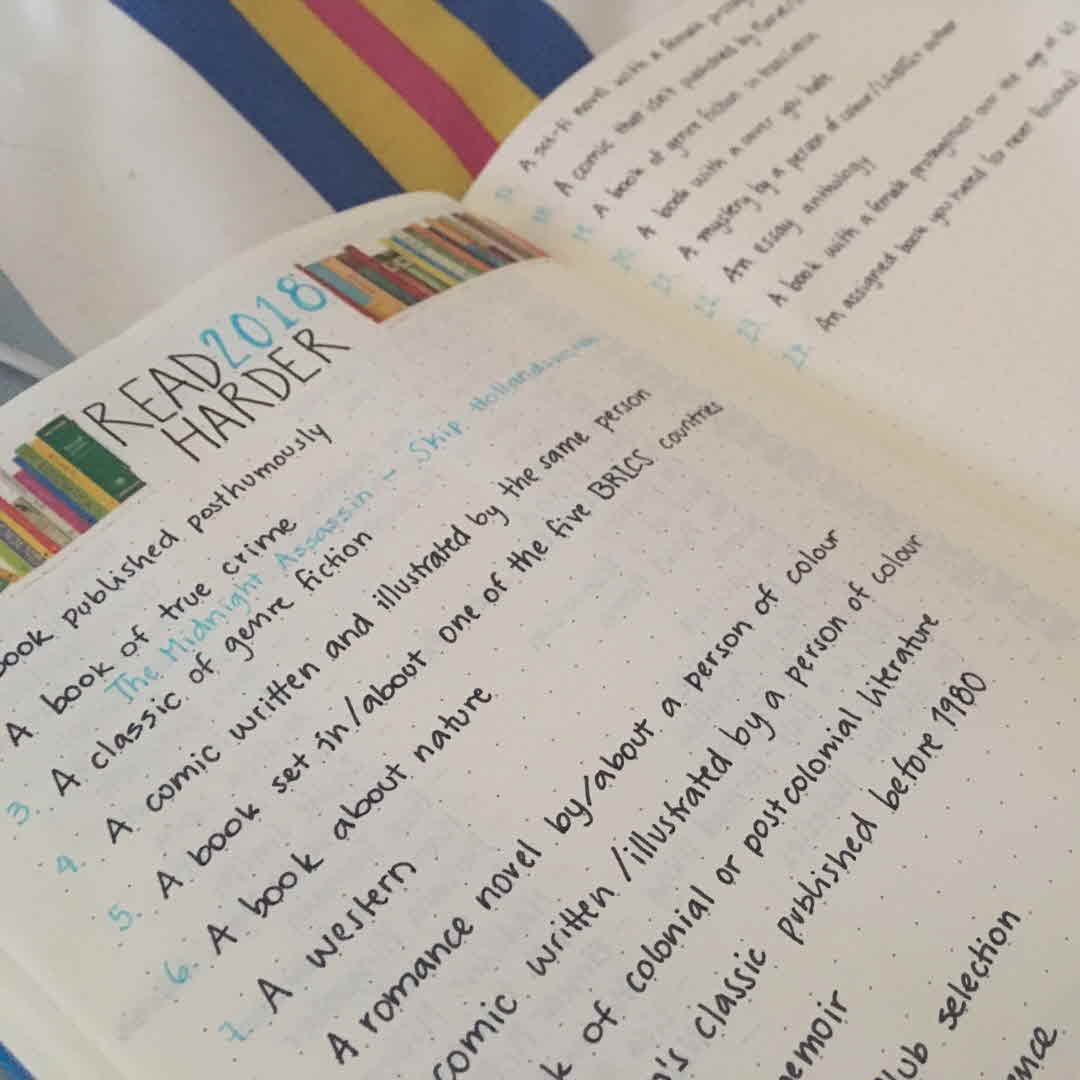 READ 2018
HARDER
book published posthumously
A book of true crime
The Midnight Assassin - Skip Hollandsworth
3. A classic of genre fiction
4. A comic written and illustrated by the same person
5. A book set in/about one of the five BRICS countries
6. A book about nature
7. A western
A romance novel by/about a person of colour
comic written/illustrated by a person of colour
of colonial or postcolonial literature
classic published before 1980
selection
A sci-fi novel with a female
A comic that isn't published by
A book of genre fiction in translation
20. A book with a cover you hate
21. A mystery by a person of colour/LGBTQ+ author
22. An essay anthology
23. A book with a female protagonist over the age of 60
24. An assigned book you hated (or never finished)